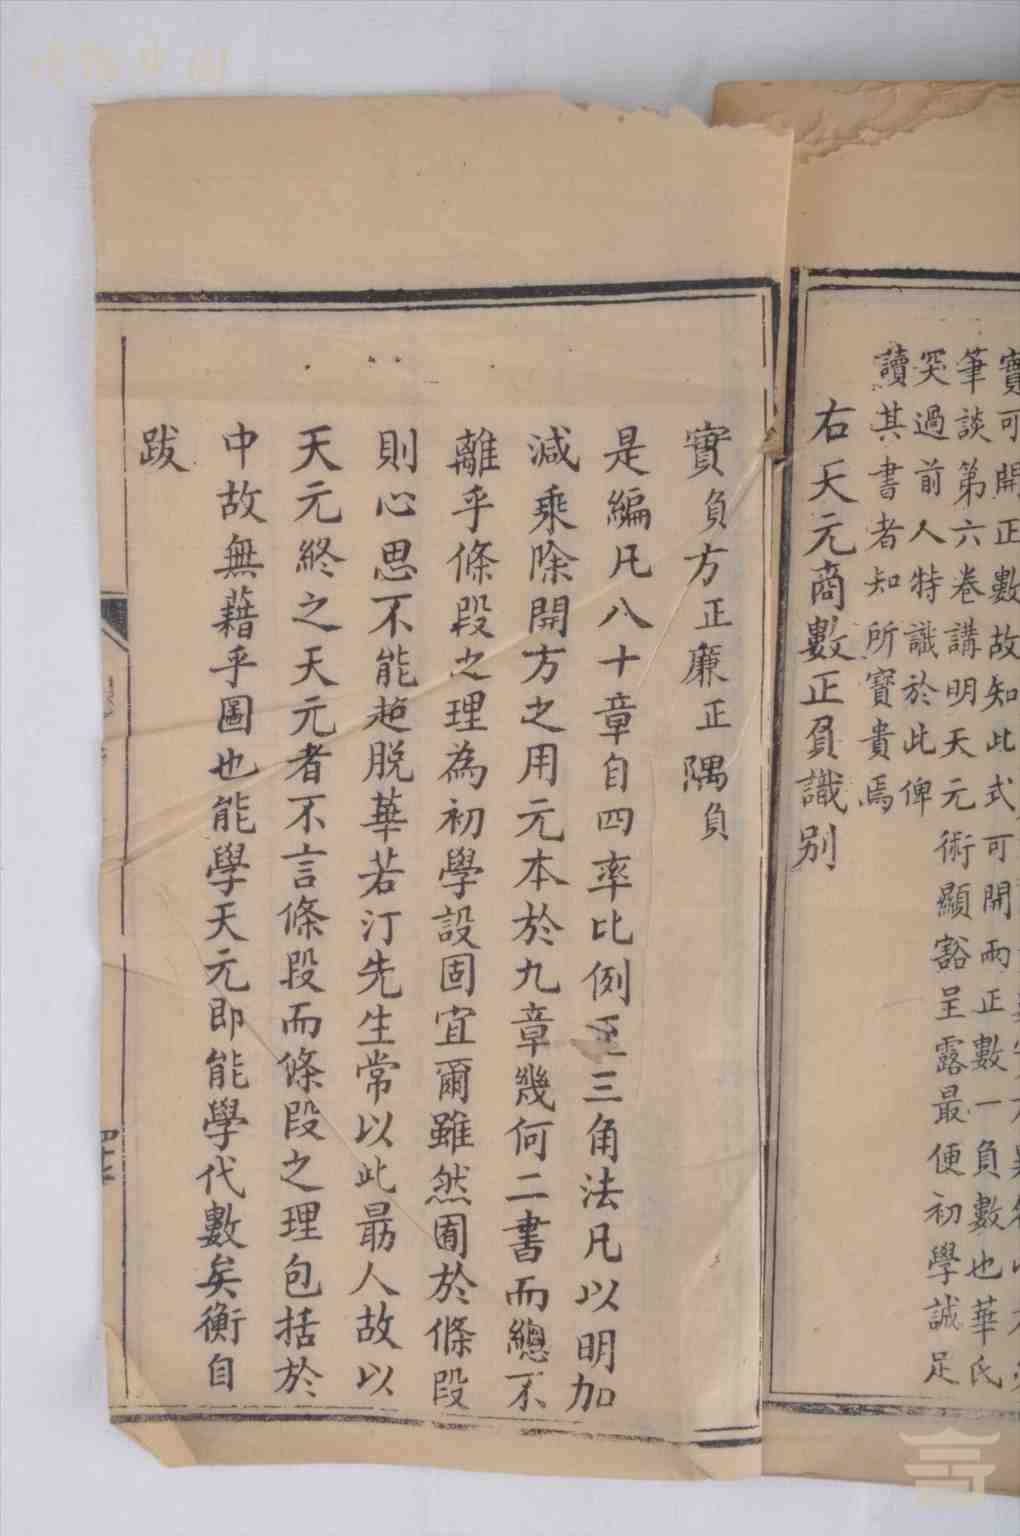 實可開正數故知此式可開兩正數一負數也華氏
筆談第六卷講明天元術顯豁呈露最便初學誠足
突過前人特識於此俾
讀其書者知所寶貴焉
右天元商數正負識别
實負方正廉正隅負
是編凡八十章自四率比例至三角法凡以明加
減乘除開方之用元本於九章幾何二書而總不
離乎條段之理為初學設固宜爾雖然囿於條段
則心思不能超脱華若汀先生常以此勗人故以
天元終之天元者不言條段而條段之理包括於
中故無藉乎圖也能學天元即能學代數矣衡自
跋